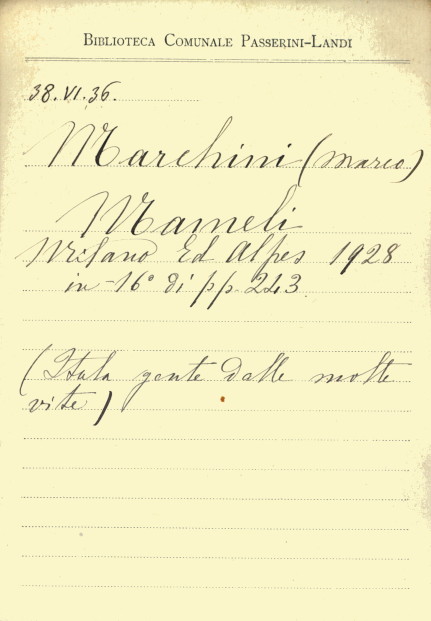 BIBLIOTECA COMUNALE PASSERINI-LANDI
38.VI.36.
Marchini (Marco)
Mameli
Milano Ed Alpes 1928
in-16° di pp. 243.
(Itala gente dalle molte
vite)